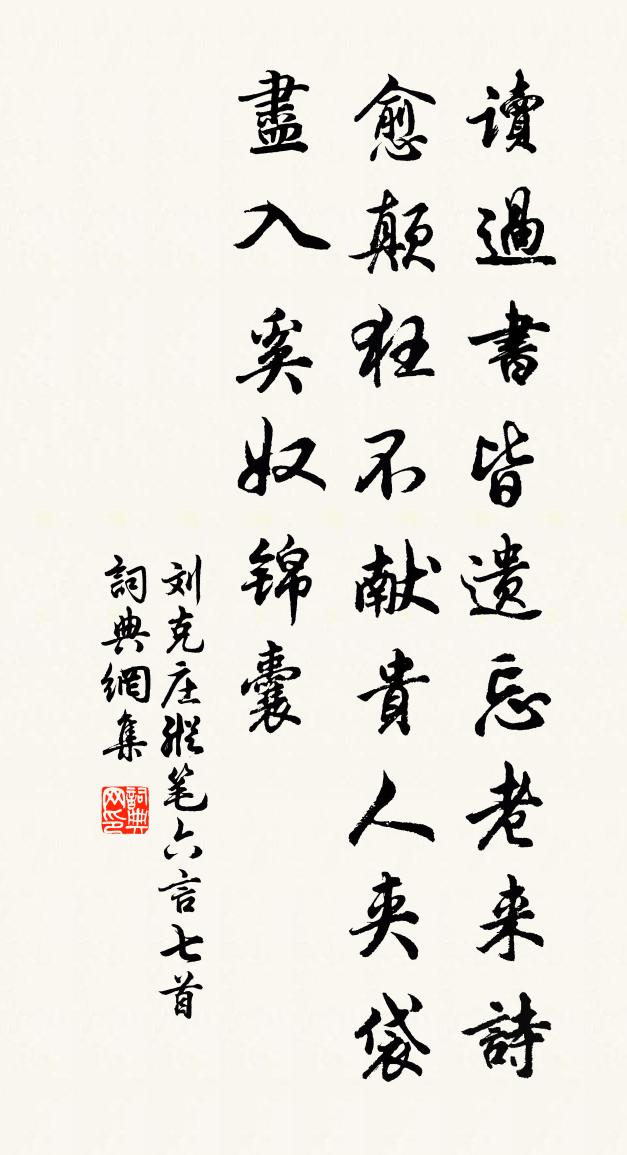 讀過書皆遺忘老来詩
愈颠狂不献貴人夹袋
盡入奚奴锦囊
刘克庄縱笔六言七首
詞典網集
詞典網印